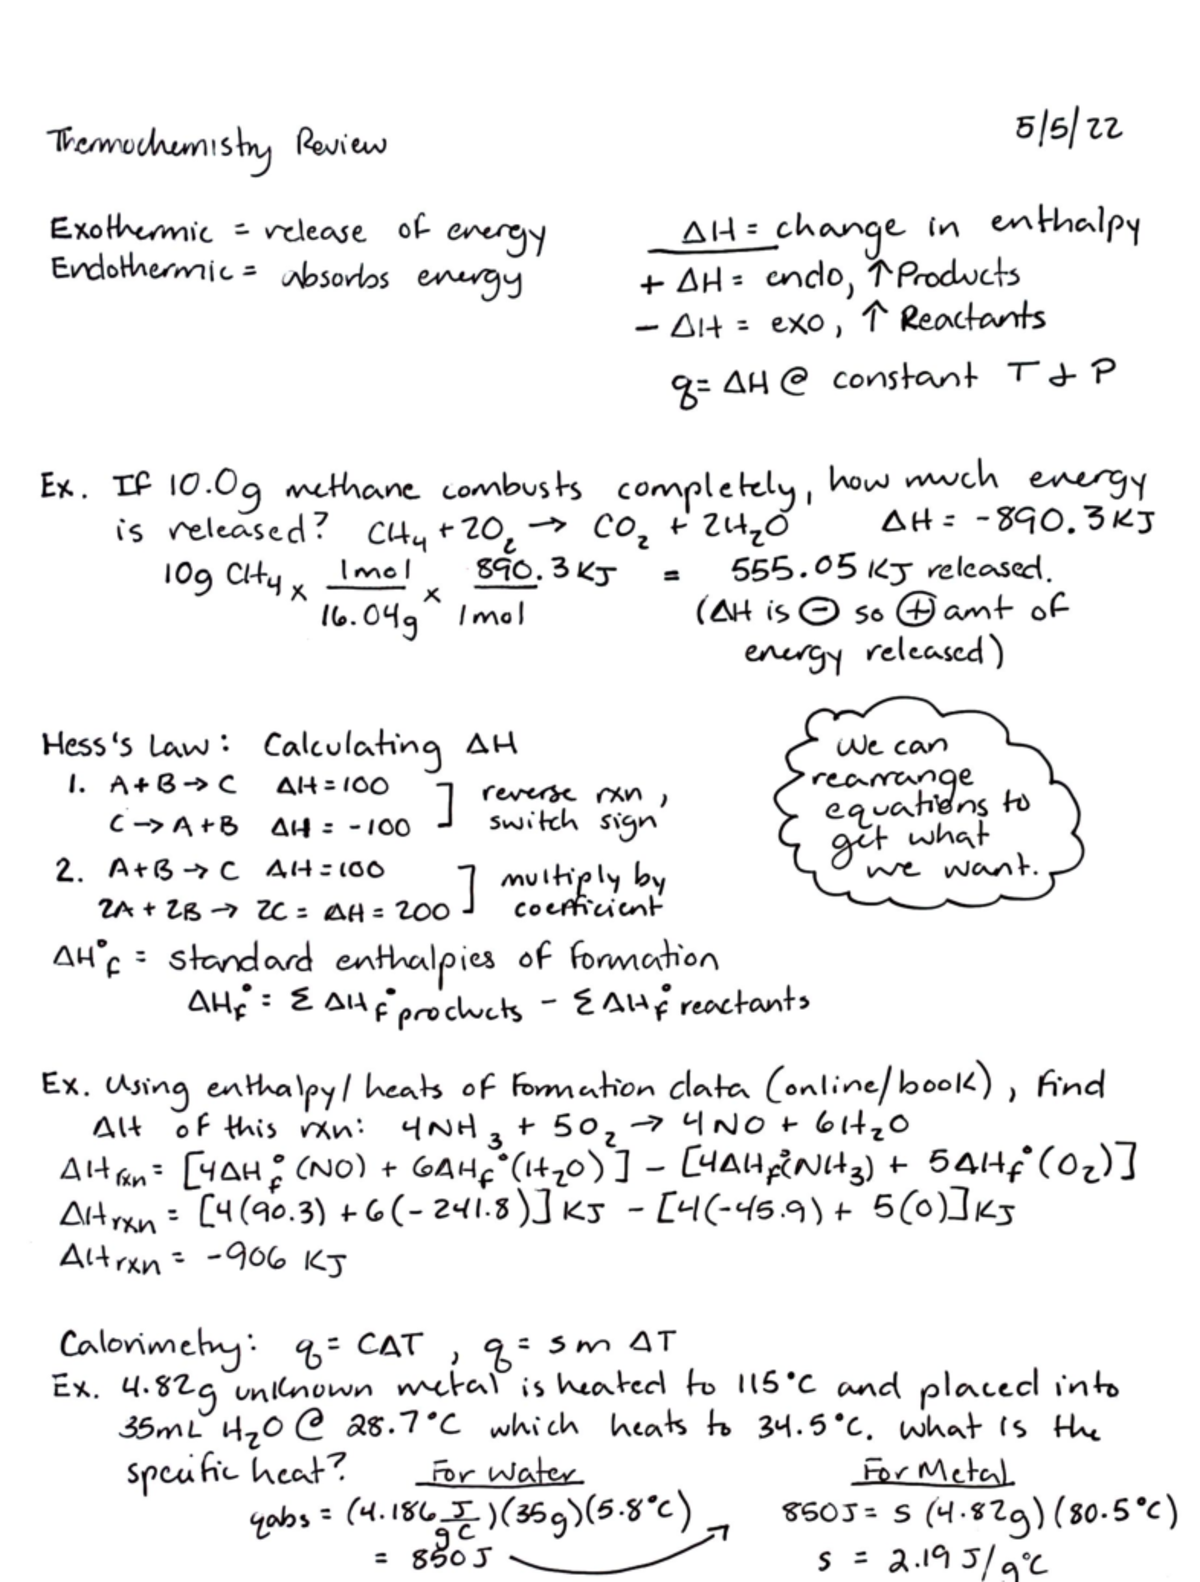 Thermochemistry Review
5/5/22
Exothermic = release of energy
Endothermic = absorbs energy
ΔH = change in enthalpy
+ ΔH = endo, ↑ Products
- ΔH = exo, ↑ Reactants
q = ΔH @ constant T & P
Ex. If 10.0g methane combusts completely, how much energy
is released? CH₄ + 2O₂ → CO₂ + 2H₂O ΔH = -890.3 KJ
10g CH₄ x 1mol/16.04g x 890.3 KJ/1mol = 555.05 KJ released.
(ΔH is ⊖ so ⊕ amt of
energy released)
Hess's Law: Calculating ΔH
1. A+B → C ΔH = 100
C → A+B ΔH = -100
] reverse rxn,
switch sign
2. A+B → C ΔH = 100
2A + 2B → 2C = ΔH = 200
] multiply by
coefficient
We can
rearrange
equations to
get what
we want.
ΔH°f = standard enthalpies of formation
ΔHf° = Σ ΔHf° products - Σ ΔHf° reactants
Ex. Using enthalpy/heats of formation data (online/book), find
ΔH of this rxn: 4NH₃ + 5O₂ → 4NO + 6H₂O
ΔHrxn = [4ΔHf°(NO) + 6ΔHf°(H₂O)] - [4ΔHf°(NH₃) + 5ΔHf°(O₂)]
ΔHrxn = [4(90.3) + 6(-241.8)] KJ - [4(-45.9) + 5(0)] KJ
ΔHrxn = -906 KJ
Calorimetry: q = CΔT, q = s m ΔT
Ex. 4.82g unknown metal is heated to 115°C and placed into
35mL H₂O @ 28.7°C which heats to 34.5°C. What is the
specific heat?
For Water
qabs = (4.186 J/g°C)(35g)(5.8°C)
= 850 J
For Metal
850J = s (4.82g)(80.5°C)
s = 2.19 J/g°C